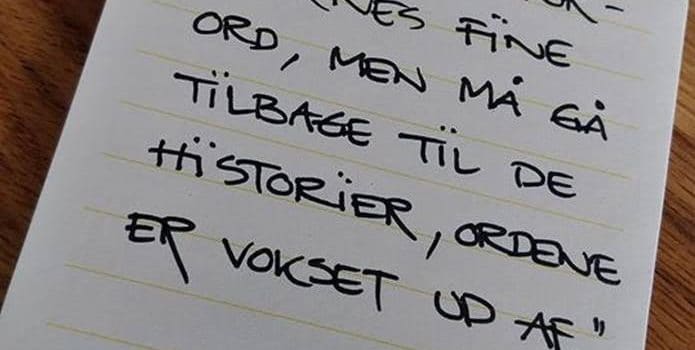 FÏNE
ORD, MEN MÅ GÅ
TÏLBAGE TÏL DE
HÏSTORÏER, ORDENE
ER VOKSET UD AF"